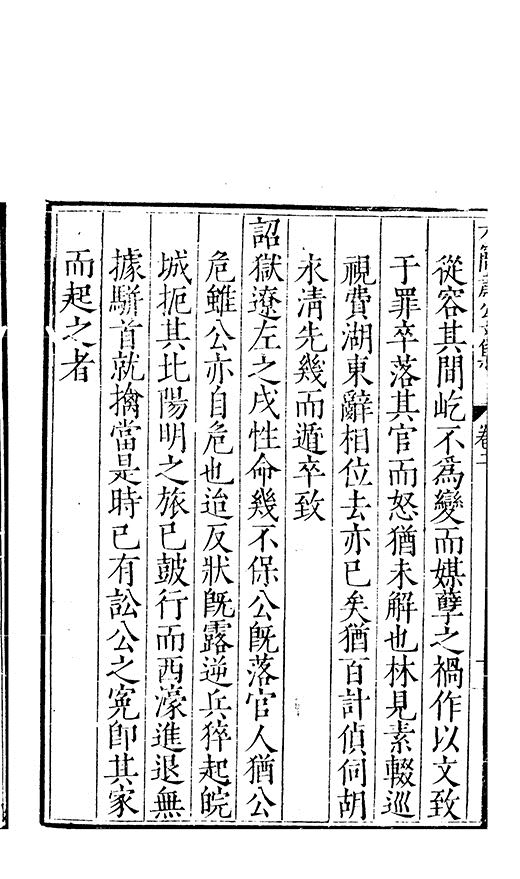 從容其間屹不爲變而媒孽之禍作以文致
于罪卒落其官而怒猶未解也林見素輟巡
視費湖東辭相位去亦已矣猶百計偵伺胡
永清先幾而遁卒致
詔獄遼左之戌性命幾不保公旣落官人猶公
危雖公亦自危也迨反狀旣露逆兵猝起皖
城扼其北陽明之旅已皷行而西濠進退無
據駢首就擒當是時已有訟公之寃卽其家
而起之者